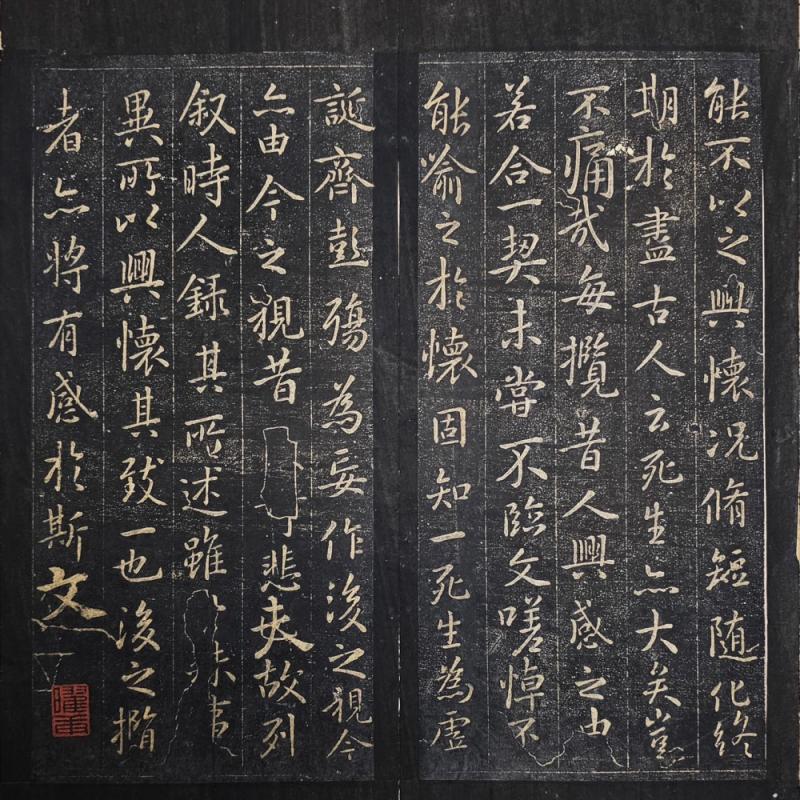 能不以之興懷况脩短隨化終
期於盡古人云死生亦大矣豈
不痛哉每攬昔人興感之由
若合一契未嘗不臨文嗟悼不
能喻之於懷固知一死生為虛
誕齊彭殤為妄作後之視今
亦由今之視昔悲夫故列
叙時人錄其所述雖殊事
異所以興懷其致一也後之攬
者亦將有感於斯文